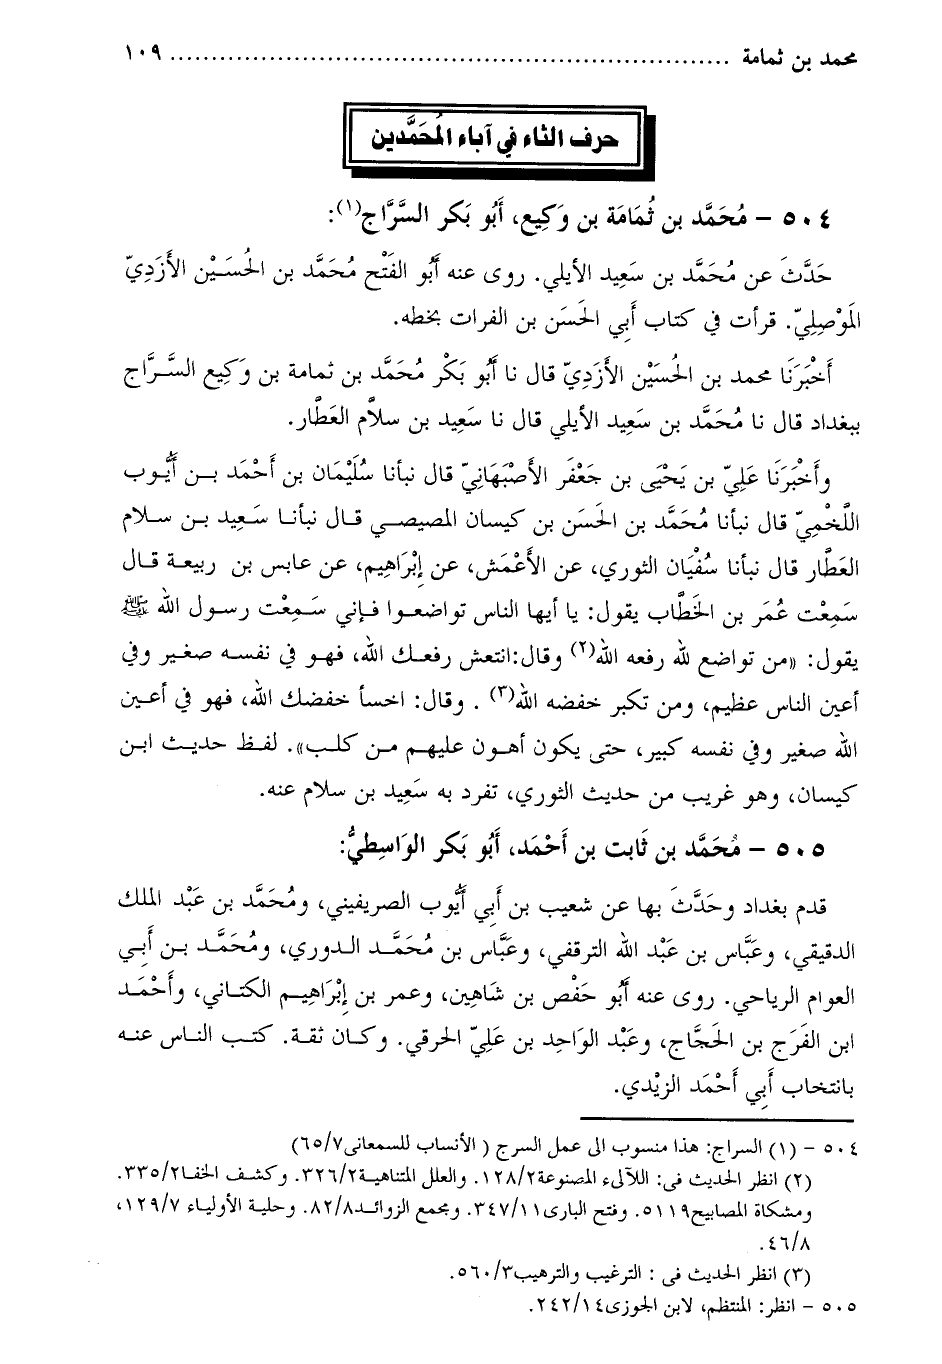 محمد بن ثمامة ........................................................................ ١٠٩
حرف الثاء في آباء المُحَمَّدين
٥٠٤ – مُحَمَّد بن ثُمَامَة بن وَكِيع، أَبُو بَكر السَّرَّاج(١):
حَدَّثَ عن مُحَمَّد بن سَعِيد الأيلي. روى عنه أَبُو الفَتْح مُحَمَّد بن الحُسَيْن الأَزَدِيّ
المَوْصِلِيّ. قرأت في كتاب أَبِي الحَسَن بن الفرات بخطه.
أَخْبَرَنَا محمد بن الحُسَيْن الأَزَدِيّ قال نا أَبُو بَكْر مُحَمَّد بن ثمامة بن وَكِيع السَّرَّاج
ببغداد قال نا مُحَمَّد بن سَعِيد الأيلي قال نا سَعِيد بن سلاَّم العَطَّار.
وأَخْبَرَنَا عَلِيّ بن يَحْيَى بن جَعْفَر الأصْبَهَانِيّ قال نبأنا سُلَيْمَان بن أَحْمَد بن أَيُّوب
اللَّخْمِيّ قال نبأنا مُحَمَّد بن الحَسَن بن كيسان المصيصي قال نبأنا سَعِيد بن سلام
العَطَّار قال نبأنا سُفْيَان الثوري، عن الأَعْمَش، عن إِبْرَاهِيم، عن عابس بن ربيعة قال
سَمِعْت عُمَر بن الخَطَّاب يقول: يا أيها الناس تواضعوا فإني سَمِعْت رسول الله ﷺ
يقول: «من تواضع لله رفعه الله(٢) وقال:انتعش رفعك الله، فهو في نفسه صغير وفي
أعين الناس عظيم، ومن تكبر خفضه الله(٣) . وقال: اخسأ خفضك الله، فهو في أعين
الله صغير وفي نفسه كبير، حتى يكون أهون عليهم من كلب». لفظ حديث ابن
كيسان، وهو غريب من حديث الثوري، تفرد به سَعِيد بن سلام عنه.
٥٠٥ – مُحَمَّد بن ثَابت بن أَحْمَد، أَبُو بَكر الوَاسِطيُّ:
قدم بغداد وحَدَّثَ بها عن شعيب بن أَبِي أَيُّوب الصريفيني، ومُحَمَّد بن عَبْد الملك
الدقيقي، وعَبَّاس بن عَبْد الله الترقفي، وعَبَّاس بن مُحَمَّد الدوري، ومُحَمَّد بن أَبِي
العوام الرياحي. روى عنه أَبُو حَفْص بن شاهين، وعمر بن إِبْرَاهِيم الكتاني، وأَحْمَد
ابن الفَرَج بن الحَجَّاج، وعَبْد الوَاحِد بن عَلِيّ الحرقي. وكان ثقة. كتب الناس عنه
بانتخاب أَبِي أَحْمَد الزيْدي.
٥٠٤ – (١) السراج: هذا منسوب الى عمل السرج ( الأنساب للسمعانى٦٥/٧)
(٢) انظر الحديث فى: اللآلىء المصنوعة١٢٨/٢. والعلل المتناهية٣٢٦/٢. وكشف الخفا٣٣٥/٢.
ومشكاة المصابيح٥١١٩. وفتح البارى٣٤٧/١١. ومجمع الزوائد٨٢/٨. وحلية الأولياء ١٢٩/٧،
٤٦/٨.
(٣) انظر الحديث فى : الترغيب والترهيب٥٦٠/٣.
٥٠٥ – انظر: المنتظم، لابن الجوزى٢٤٢/١٤.